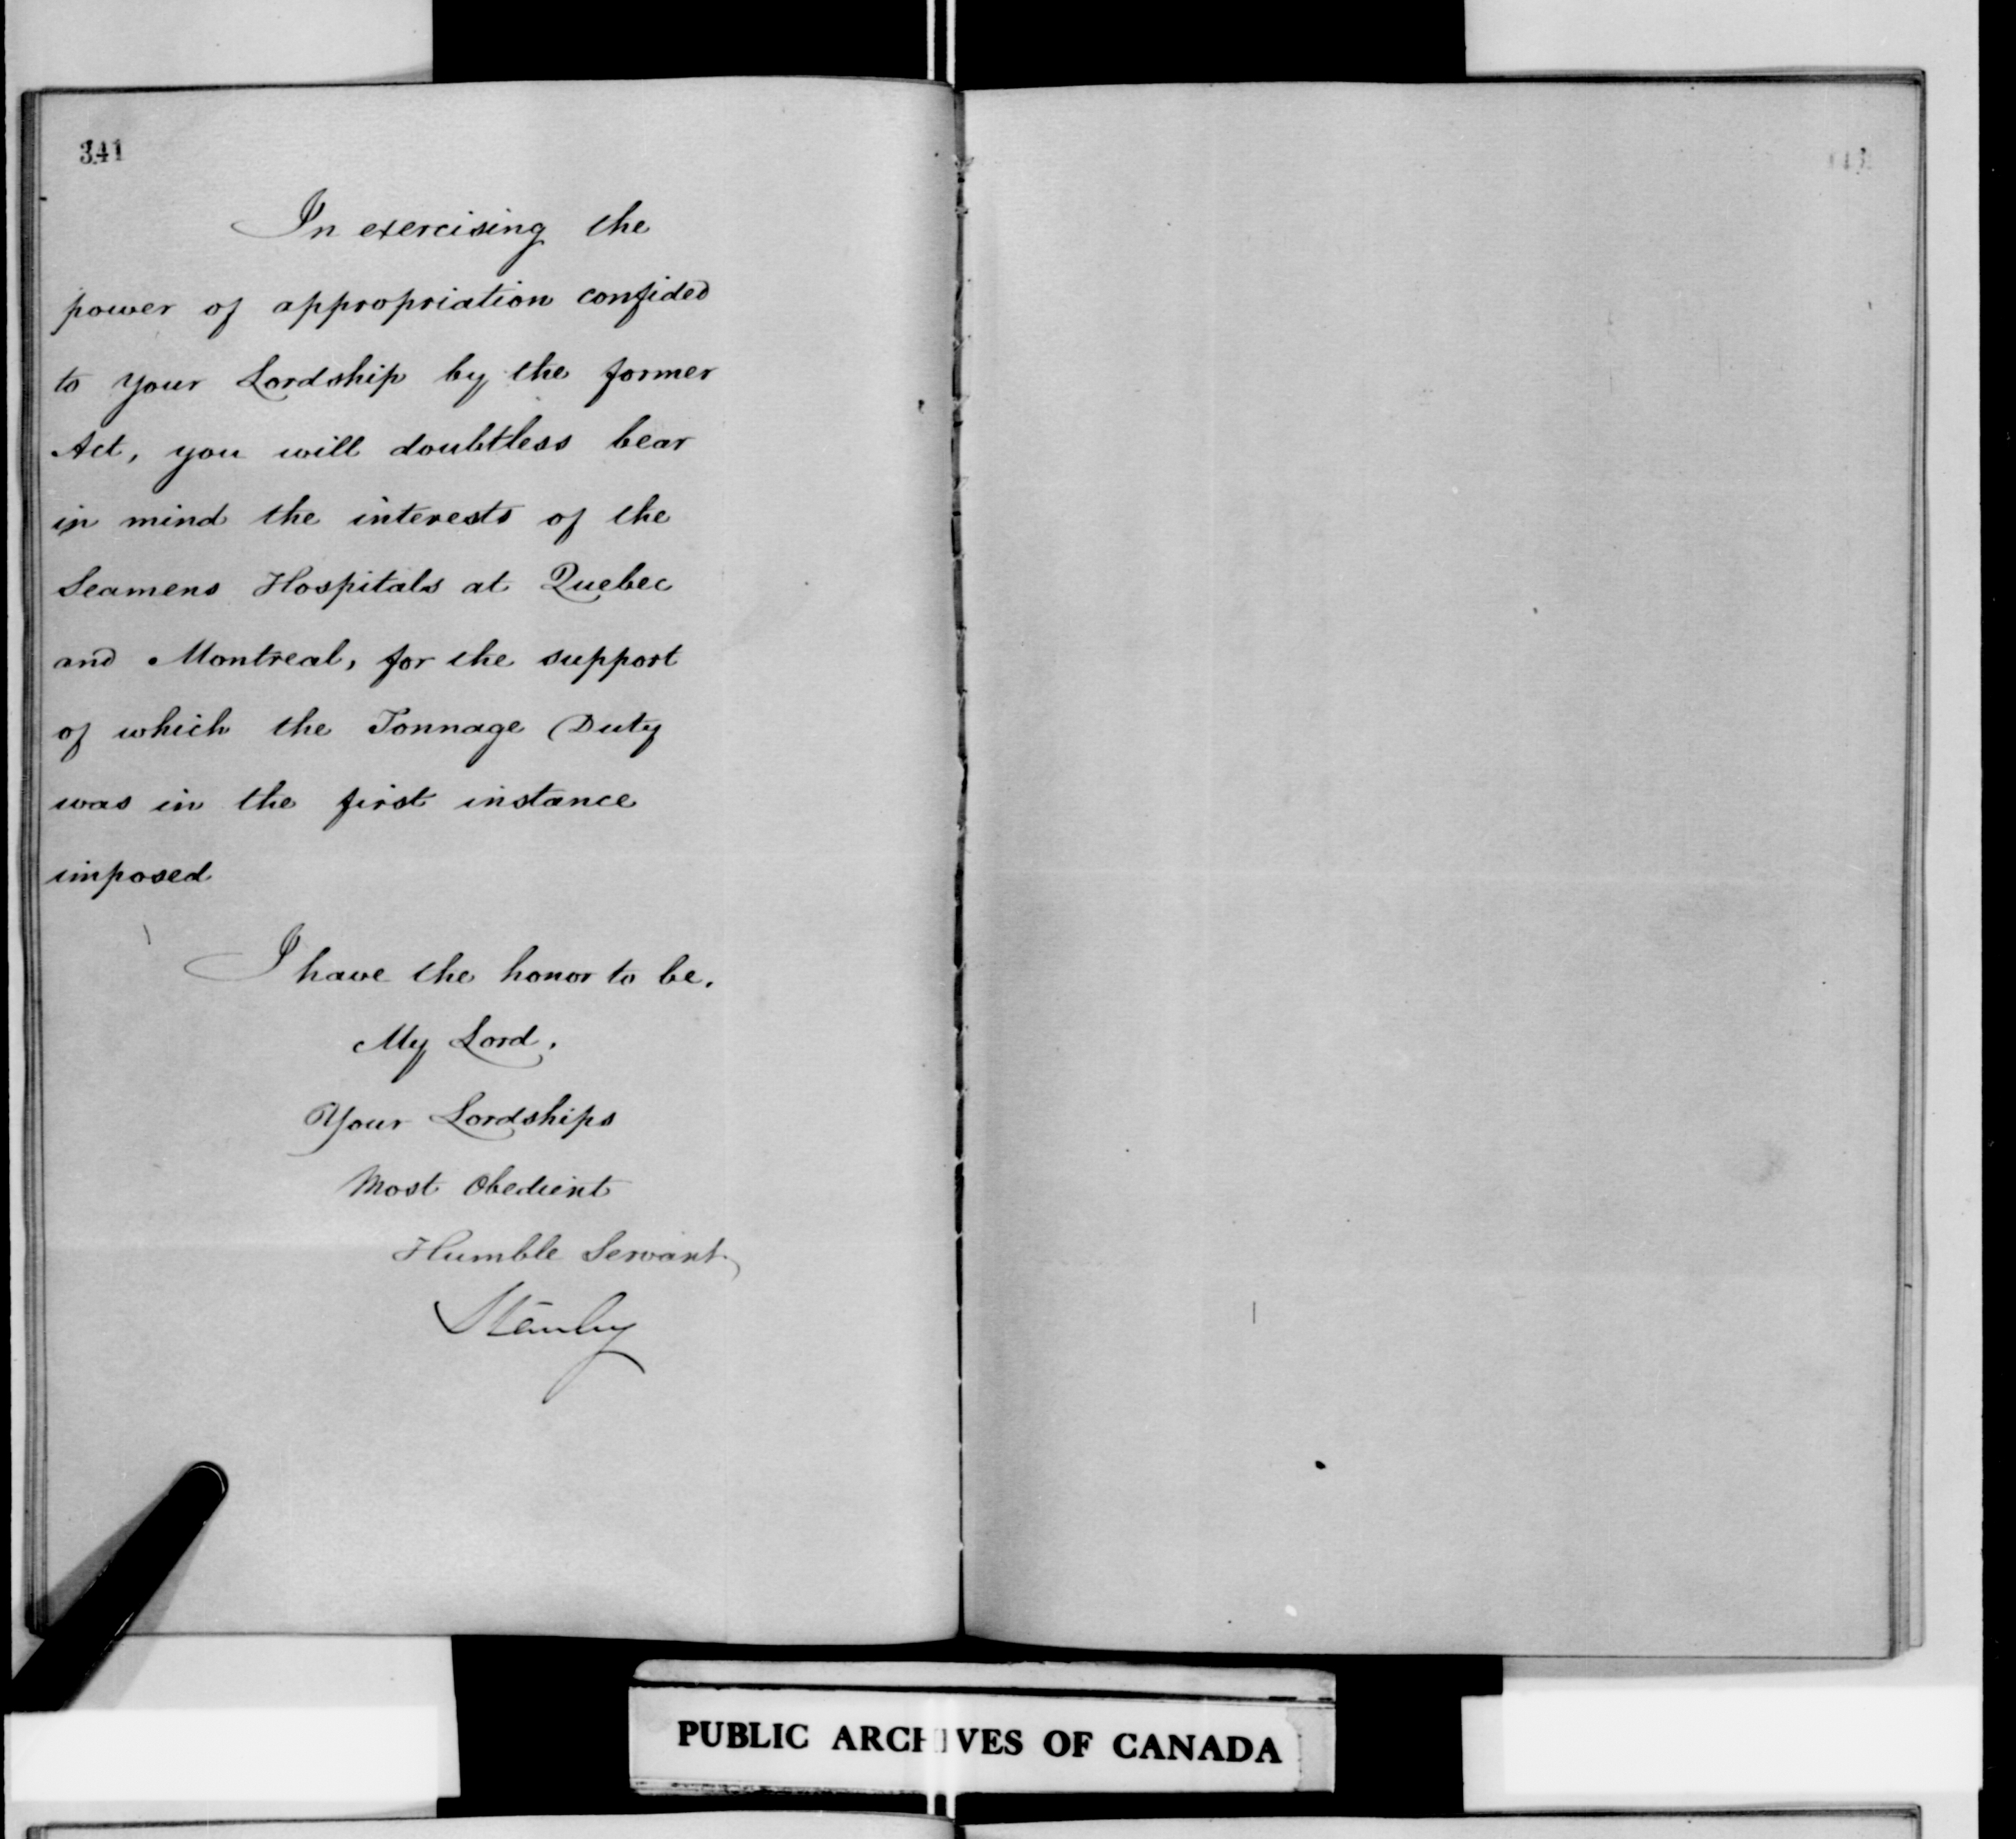 341
In exercising the
power of appropriation confided
to your Lordship by the former
Act, you will doubtless bear
in mind the interests of the
Seamens Hospitals at Quebec
and Montreal, for the support
of which the Tonnage Duty
was in the first instance
imposed
I have the honor to be.
My Lord,
Your Lordships
Most Obedient
Humble Servant
Stanley
PUBLIC ARCHIVES OF CANADA